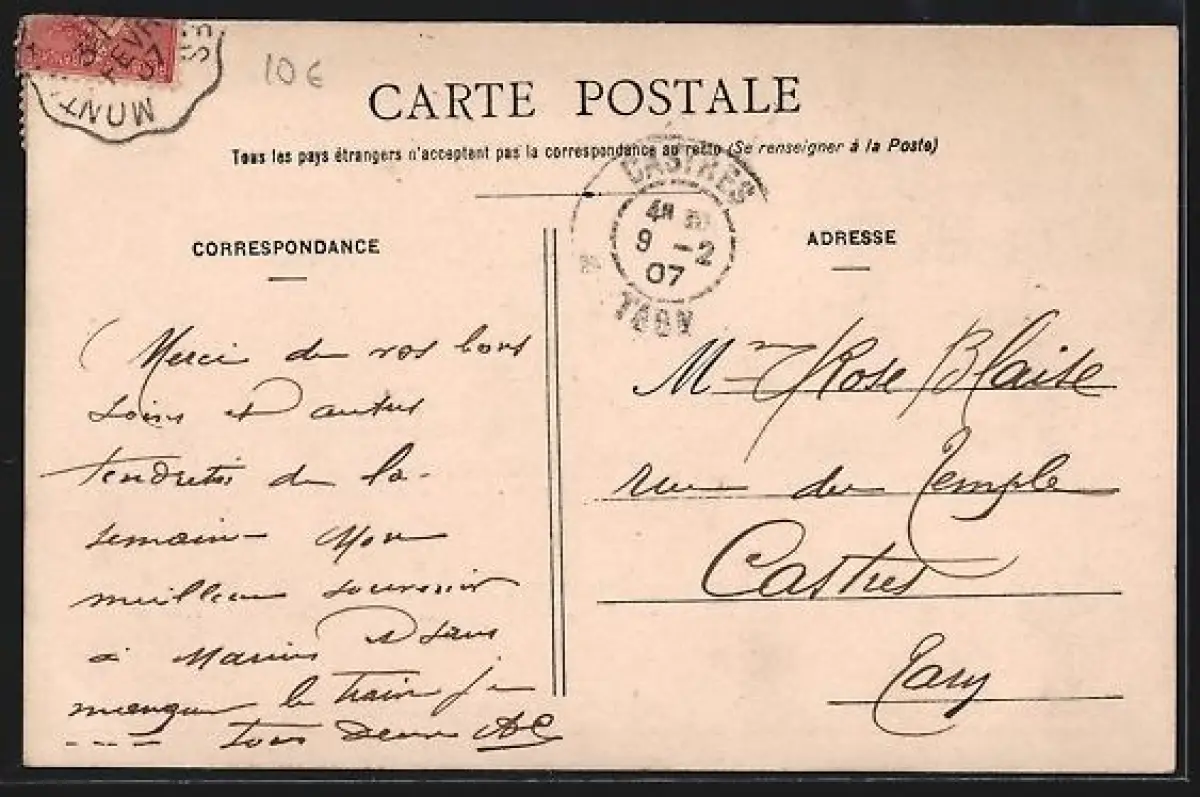 FEVR
07
MONT
SE
10€
CARTE POSTALE
Tous les pays étrangers n'acceptent pas la correspondance au recto (Se renseigner à la Poste)
CASTRES
4H
9 - 2
07
TARN
CORRESPONDANCE
Merci de vos bons
soins et autres
tendretés de la
semaine Mon
meilleur souvenir
à Marius et sans
manquer le train je
tous deux
ADRESSE
Mme Rose Blaise
rue du Temple
Castres
Tarn